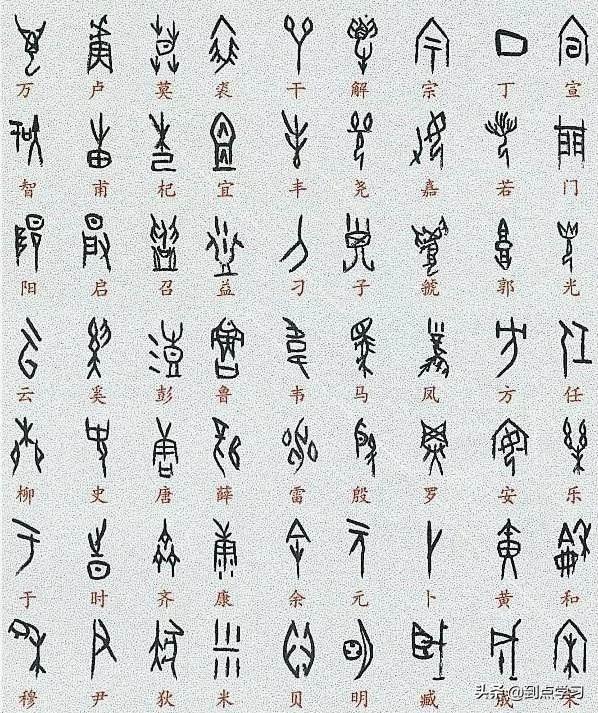 万 卢 莫 裘 干 解 宗 丁 宣
智 甫 杞 宜 丰 尧 嘉 若 门
阳 启 召 益 刁 子 虢 郭 光
云 奚 彭 鲁 韦 马 凤 方 任
柳 史 唐 薛 雷 殷 罗 安 乐
于 时 齐 康 余 元 卜 黄 和
穆 尹 狄 米 贝 明 臧 成 宋
头条 @到点学习